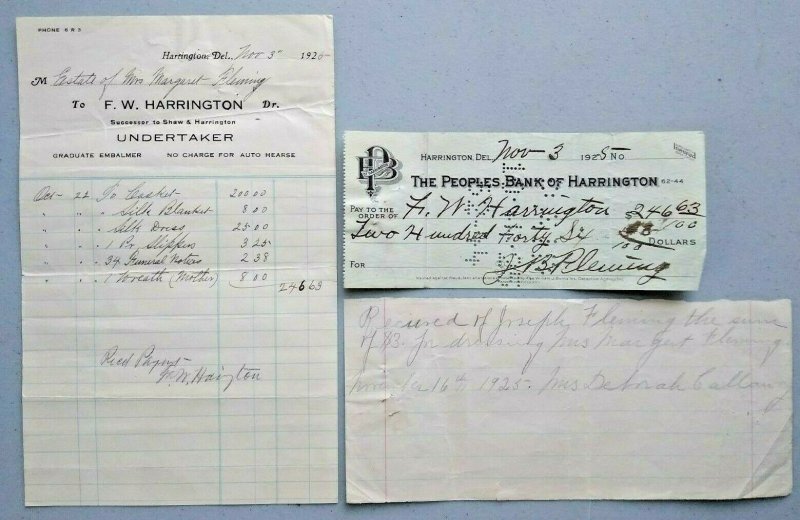 PHONE 6 R 3
Harrington, Del., Nov 3" 1925
M Estate of Mrs Margaret Fleming
To F. W. HARRINGTON Dr.
Successor to Shaw & Harrington
UNDERTAKER
GRADUATE EMBALMER NO CHARGE FOR AUTO HEARSE
Oct 22 To Casket 200 00
" " " Silk Blanket 8 00
" " " Silk Dress 25 00
" " " 1 Pr. Slippers 3 25
" " " 34 Funeral Notices 2 38
" " " 1 Wreath (Mother) 8 00
246 63
Recd Payment
F. W. Harrington
HARRINGTON, DEL. Nov 3 1925 No.
THE PEOPLES BANK OF HARRINGTON 62-44
PAY TO THE ORDER OF F. W. Harrington $246 63/100
Two Hundred Forty Six 63/100 DOLLARS
FOR J. B. Fleming
Received of Joseph Fleming the sum
of $3. for dressing Mrs Margert Fleming
November 16th 1925. Mrs Deborah Callaway